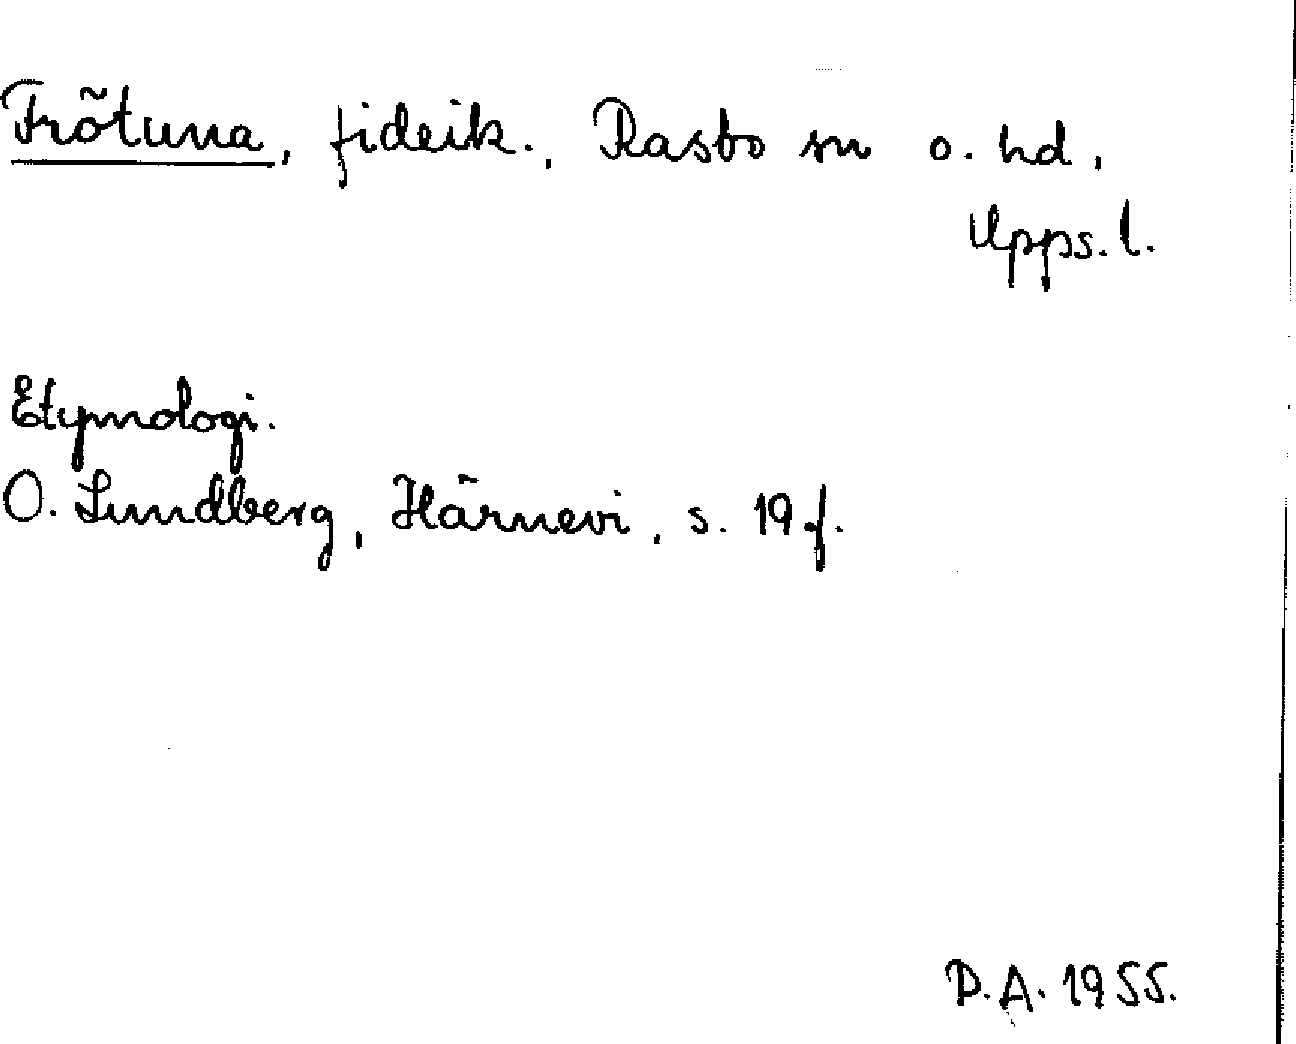 Frötuna, fideik., Rasbo sn o. hd,
Upps. l.
Etymologi.
O. Lundberg, Härnevi, s. 19 f.
D.A. 1955.